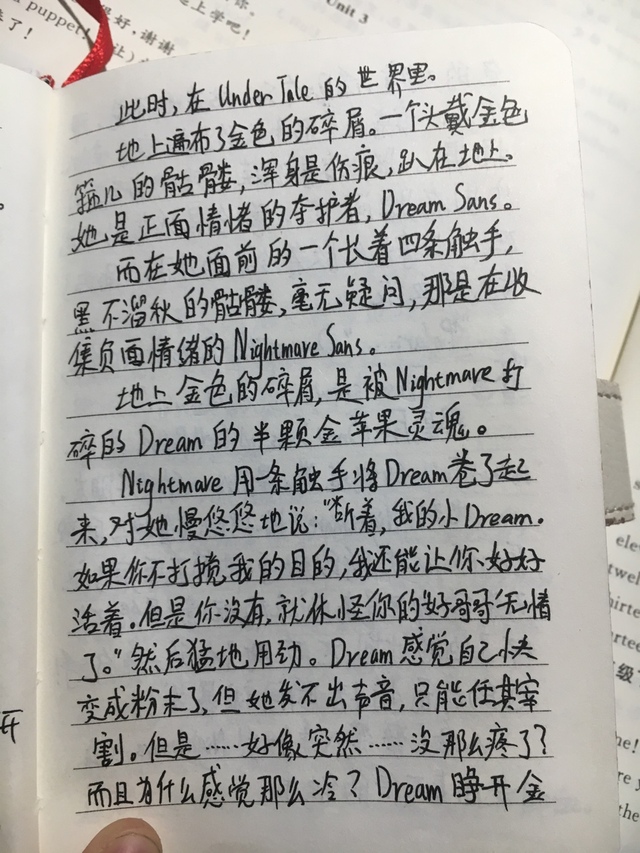 puppet!
Unit 3
好,谢谢
上学吧!
此时,在 UnderTale 的世界里。
地上遍布了金色的碎屑。一个头戴金色
箍儿的骷髅,浑身是伤痕,趴在地上。
她是正面情绪的守护者,Dream Sans。
而在她面前的一个长着四条触手,
黑不溜秋的骷髅,毫无疑问,那是在收
集负面情绪的 Nightmare Sans。
地上金色的碎屑,是被Nightmare打
碎的 Dream 的半颗金苹果灵魂。
Nightmare 用一条触手将Dream卷了起
来,对她慢悠悠地说:“听着,我的小Dream.
如果你不打搅我的目的,我还能让你好好
活着.但是你没有,就休怪你的好哥哥无情
了。”然后猛地用劲。Dream感觉自己快
变成粉末了,但她发不出声音,只能任其宰
割。但是……好像突然……没那么疼了?
而且为什么感觉那么冷?Dream 睁开金